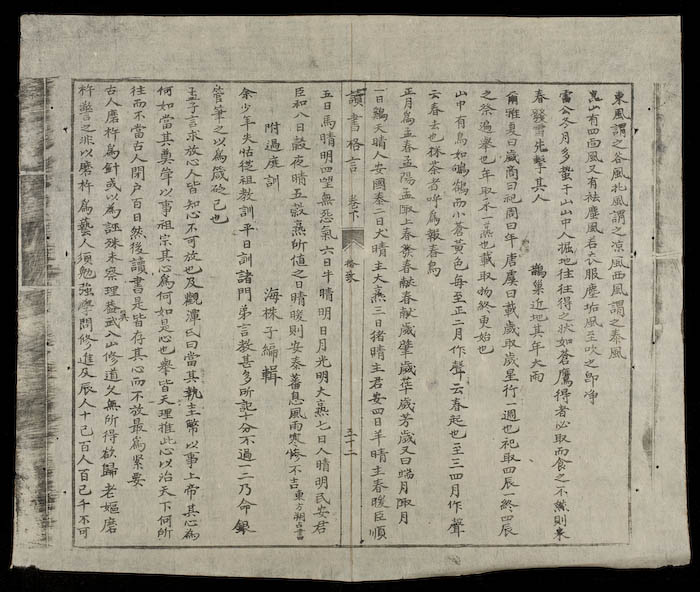 東風謂之谷風北風謂之凉風西風謂之泰風
崑山有四面風又有祛塵風若衣服塵垢風至吹之即净
雷公冬月多蟄于山山中人掘地往往得之状如蒼鷹得者必取而食之不然則來
春發雷先擊其人　鵲巢近地其年大雨
爾雅夏曰歲商曰祀周曰年唐虞曰載歲取歲星行一週也祀取四辰一終四辰
之祭過舉也年取禾一熟也載取物終更始也
山中有鳥如鴝鵒而小蒼黄色每至正二月作聲云春起也至三四月作聲
云春去也採茶者呼為報春鳥
正月為孟春孟陽孟陬上春發春献春献歲肇歲華歲芳歲又曰端月陬月
一日鷄天晴人安國泰二日犬晴主大熟三日猪晴主君安四日羊晴主春暖臣順
讀書格言　卷下　五十二
五日馬晴明四望無惡氣六日牛晴明日月光明大熟七日人晴明民安君
臣和八日穀夜晴五穀熟所值之日晴暖則安泰蕃息風雨寒惨不吉東方朔占書
附過庭訓　海株子編輯
余少年失怙從祖教訓平日訓諸門弟言教甚多所記十分不過一二乃命銀
管筆之以為箴砭已也
孟子言求放心人皆知心不可放也及觀潭氏曰當其執圭幣以事上帝其心為
何如當其奠斝以事祖宗其心為何如是心也舉皆天理推此心以治天下何所
往而不當古人閉户百日然後讀書是皆存其心而不放最為緊要
古人磨杵為針或以為誣殊未察理昔武人山修道久無所得欲歸老嫗磨
杵警之非以磨杵為藝人須勉強學問修進及辰人十己百人百己千不可